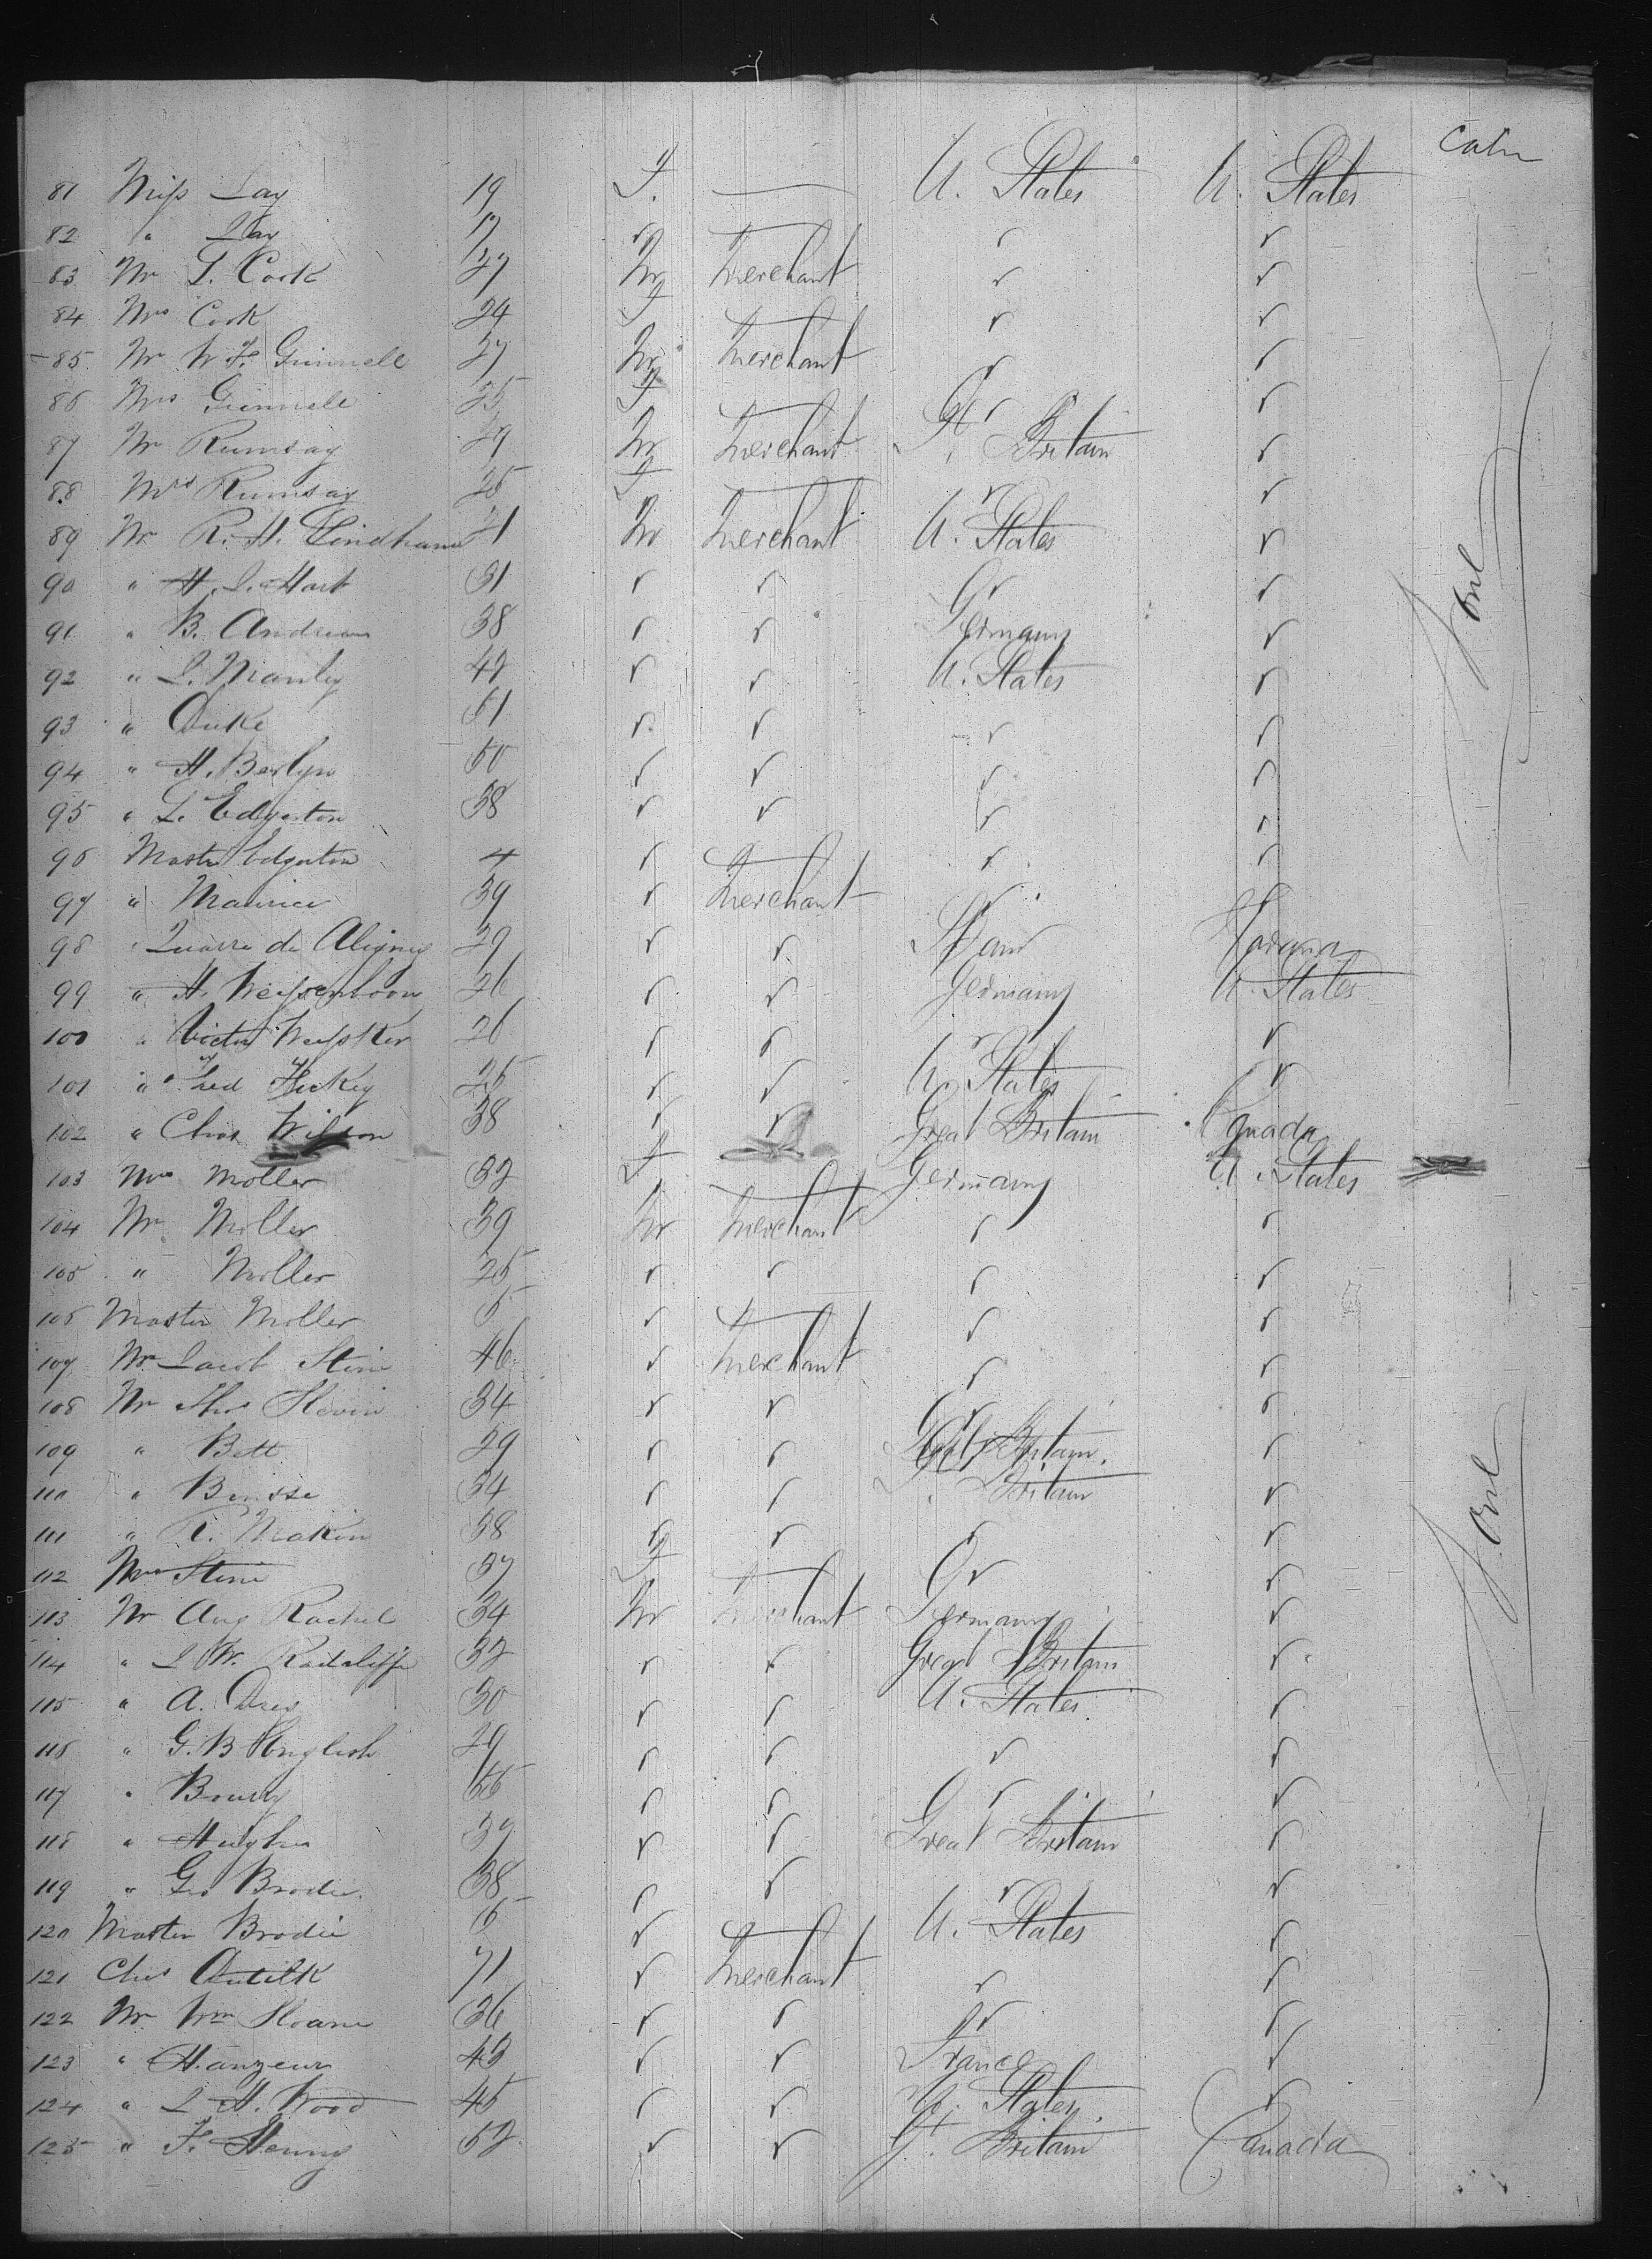 Cabin
81 Miss Lay 19 F. — U. States U. States
82 " Lay 17 " " "
83 Mr L. Cook 27 M Merchant " "
84 Mrs Cook 24 F — " "
85 Mr W F. Grinnell 27 M Merchant " "
86 Mrs Grinnell 25 F — " "
87 Mr Rumsay 29 M Merchant Gt. Britain "
88 Mrs Rumsay 25 F — " "
89 Mr R. H. 21 M Merchant U. States "
90 " H. L. Hart 31 " " " "
91 " B. 38 " " Germany "
92 " L. Manley 42 " " U. States "
93 " Duke 51 " " " "
94 " H. Berlyn 50 " " " "
95 " L. Edgerton 38 " " " "
96 Master Edgerton 4 " — " "
97 " Maurice 39 " Merchant " "
98 " de 29 " " Spain Havana
99 " H. 26 " " Germany U. States
100 " Victor 26 " " " "
101 " Fred Hickey 25 " " U. States "
102 " Chas Wilson 38 " " Great Britain Canada
103 Mrs Moller 32 F — Germany U. States
104 Mr Moller 39 M Merchant " "
105 " Moller 25 " " " "
106 Master Moller 5 " — " "
107 Mr Jacob Stine 46 " Merchant " "
108 Mr Thos Slevin 34 " " " "
109 " Bett 29 " " Great Britain. "
110 " 34 " " Britain "
111 " R. Makin 38 " " " "
112 Mrs Stine 37 F — " "
113 Mr Aug Rachel 34 M Merchant Germany "
114 " J W. Radcliffe 32 " " Great Britain "
115 " A. 30 " " U. States "
116 " G. B English 29 " " " "
117 " " " " "
118 " Hughes " " Great Britain "
119 " Geo Brodie. 38 " " " "
120 Master Brodie 6 " — U. States "
121 Chas 71 " Merchant " "
122 Mr Wm Sloane 36 " " " "
123 " 43 " " France "
124 " J H. Wood 45 " " U. States "
125 " F. Henry 52 " " Gt. Britain Canada